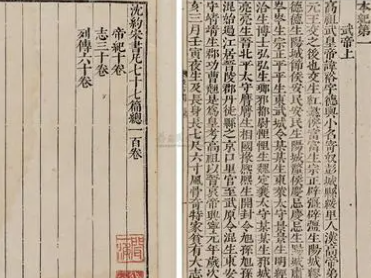 本紀第一
武帝上
高祖武皇帝諱裕字德輿小名寄奴彭城縣綏里人漢高帝弟
元王交之後也交生紅懿侯富富生宗正辟彊辟彊生陽城
德德生陽城節侯安民安民生陽城釐侯慶忌慶忌生陽城
岑岑生宗正平平生東武城令某某生東萊太守景景生明經
洽洽生博士弘弘生琅邪都尉悝悝生魏定襄太守某某生邪城
令亮亮生晉北平太守膺膺生相國掾熙熙生開封令旭孫旭孫
混始過江居晉陵郡丹徒縣之京口里官至武原令混生東安
靖靖生郡功曹翹是爲皇考高祖以晉哀帝興寧元年歲次
亥三月壬寅夜生及長身長七尺六寸風骨奇特家貧有大志
沈約宋書凡七十七篇總一百卷
帝紀十卷
志三十卷
列傳六十卷